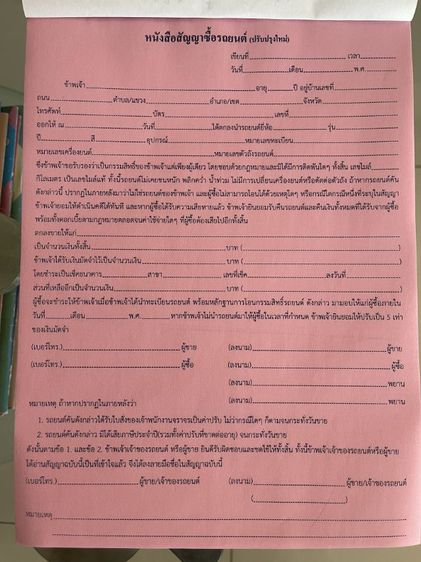 หนังสือสัญญาซื้อรถยนต์ (ปรับปรุงใหม่)
เขียนที่ เวลา
วันที่ เดือน พ.ศ.
ข้าพเจ้า อายุ ปี อยู่บ้านเลขที่
ถนน ตำบล/แขวง อำเภอ/เขต จังหวัด
โทรศัพท์ บัตร เลขที่
ออกให้ ณ วันที่ ได้ตกลงนำรถยนต์ยี่ห้อ รุ่น
ปี สี อุปกรณ์ หมายเลขทะเบียน
หมายเลขเครื่องยนต์ หมายเลขตัวถังรถยนต์
ซึ่งข้าพเจ้าขอรับรองว่าเป็นกรรมสิทธิ์ของข้าพเจ้าแต่เพียงผู้เดียว โดยชอบด้วยกฎหมายและมิได้มีการติดพันใดๆ ทั้งสิ้น เลขไมล์
กิโลเมตร เป็นเลขไมล์แท้ ทั้งนี้รถยนต์ไม่เคยชนหนัก พลิกคว่ำ น้ำท่วม ไม่มีการเปลี่ยนเครื่องยนต์หรือตัดต่อตัวถัง ถ้าหากรถยนต์คัน
ดังกล่าวนี้ ปรากฏในภายหลังมาว่าไม่ใช่รถยนต์ของข้าพเจ้า และผู้ซื้อไม่สามารถโอนได้ด้วยเหตุใดๆ หรือกรณีใดกรณีหนึ่งที่ระบุในสัญญา
ข้าพเจ้ายอมให้ดำเนินคดีได้ทันที และหากผู้ซื้อได้รับความเสียหายแล้ว ข้าพเจ้ายินยอมรับคืนรถยนต์และคืนเงินทั้งหมดที่ได้รับจากผู้ซื้อ
พร้อมทั้งดอกเบี้ยตามกฎหมายตลอดจนค่าใช้จ่ายใดๆ ที่ผู้ซื้อต้องเสียไปอีกทั้งสิ้น
ตกลงขายให้แก่
เป็นจำนวนเงินทั้งสิ้น บาท ( )
ข้าพเจ้าได้รับเงินมัดจำไว้เป็นจำนวนเงิน บาท ( )
โดยชำระเป็นเช็คธนาคาร สาขา เลขที่เช็ค ลงวันที่
ส่วนที่เหลืออีกเป็นจำนวนเงิน บาท ( )
ผู้ซื้อจะชำระให้ข้าพเจ้าเมื่อข้าพเจ้าได้นำทะเบียนรถยนต์ พร้อมหลักฐานการโอนกรรมสิทธิ์รถยนต์ ดังกล่าว มามอบให้แก่ผู้ซื้อภายใน
วันที่ เดือน พ.ศ. หากข้าพเจ้าไม่นำรถยนต์มาให้ผู้ซื้อในเวลาที่กำหนด ข้าพเจ้ายินยอมให้ปรับเป็น 5 เท่า
ของเงินมัดจำ
(เบอร์โทร.) ผู้ขาย (ลงนาม) ผู้ขาย
(เบอร์โทร.) ผู้ซื้อ (ลงนาม) ผู้ซื้อ
(ลงนาม) พยาน
หมายเหตุ ถ้าหากปรากฏในภายหลังว่า (ลงนาม) พยาน
1. รถยนต์คันดังกล่าวได้รับใบสั่งของเจ้าพนักงานจราจรเป็นค่าปรับ ไม่ว่ากรณีใดๆ ก็ตามจนกระทั่งวันขาย
2. รถยนต์คันดังกล่าว มิได้เสียภาษีประจำปี(รวมทั้งค่าปรับที่ขาดต่ออายุ) จนกระทั่งวันขาย
ดังนั้นตามข้อ 1. และข้อ 2. ข้าพเจ้าเจ้าของรถยนต์ หรือผู้ขาย ยินดีรับผิดชอบและชดใช้ให้ทั้งสิ้น ทั้งนี้ข้าพเจ้าเจ้าของรถยนต์หรือผู้ขาย
ได้อ่านสัญญาฉบับนี้เป็นที่เข้าใจแล้ว จึงได้ลงลายมือชื่อในสัญญาฉบับนี้
(เบอร์โทร.) ผู้ขาย/เจ้าของรถยนต์ (ลงนาม) ผู้ขาย/เจ้าของรถยนต์
( )
หมายเหตุ